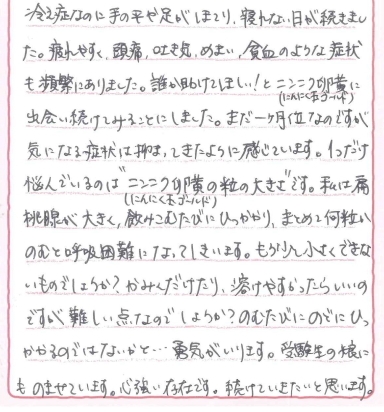 冷え症なのに手の平や足がほてり、寝れない日が続きまし
た。疲れやすく、頭痛、吐き気、めまい、貧血のような症状
も頻繁にありました。誰か助けてほしい!とニンニク卵黄に
(にんにく玉ゴールド)
出会い続けてみることにしました。まだ一ヶ月位なのですが
気になる症状は抑まってきたように感じています。1つだけ
悩んでいるのは“ニンニク卵黄の粒の大きさ”です。私は扁
(にんにく玉ゴールド)
桃腺が大きく、飲みこむたびにひっかかり、まとめて何粒か
のむと呼吸困難になってしまいます。もう少し小さくできな
いものでしょうか?かみくだけたり、溶けやすかったらいいの
ですが難しい点なのでしょうか?のむたびにのどにひっ
かかるのではないかと…勇気がいります。受験生の娘に
ものませています。心強い存在です。続けていきたいと思います。